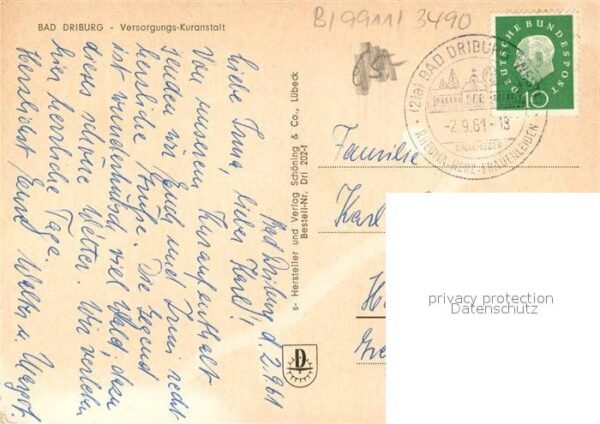 BAD DRIBURG - Versorgungs-Kuranstalt
B199111 3490
Bad Driburg d. 2.9.61
Liebe Irma, lieber Karl!
Von unserem Kuraufenthalt
senden wir Euch und Irmi recht
herzliche Grüße. Die Gegend
ist wunderhübsch, viel Wald, dazu
dieses schöne Wetter. Wir verleben
hier herrliche Tage.
Herzlichst Eure Walter u. Margot.
s- Hersteller und Verlag Schöning & Co., Lübeck
Bestell-Nr. Dri 202-f
D
DEUTSCHE BUNDESPOST
10
(21a) BAD DRIBURG
-2.9.61-13
RHEUMA-HERZ-FRAUENLEIDEN
Familie
Karl
privacy protection
Datenschutz